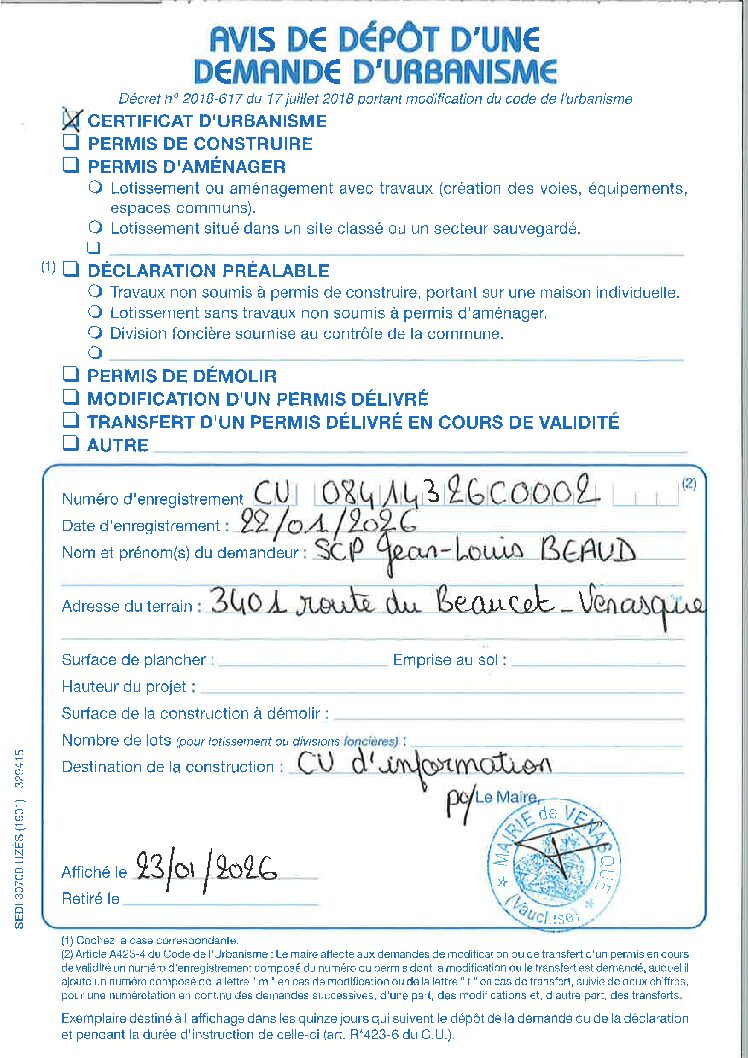 AVIS DE DÉPÔT D'UNE
DEMANDE D'URBANISME
Décret n° 2018-617 du 17 juillet 2018 portant modification du code de l'urbanisme
CERTIFICAT D'URBANISME
PERMIS DE CONSTRUIRE
PERMIS D'AMÉNAGER
Lotissement ou aménagement avec travaux (création des voies, équipements,
espaces communs).
Lotissement situé dans un site classé ou un secteur sauvegardé.
(1) DÉCLARATION PRÉALABLE
Travaux non soumis à permis de construire, portant sur une maison individuelle.
Lotissement sans travaux non soumis à permis d'aménager.
Division foncière soumise au contrôle de la commune.
PERMIS DE DÉMOLIR
MODIFICATION D'UN PERMIS DÉLIVRÉ
TRANSFERT D'UN PERMIS DÉLIVRÉ EN COURS DE VALIDITÉ
AUTRE
Numéro d'enregistrement CU 08414326C0002 (2)
Date d'enregistrement : 22/01/2026
Nom et prénom(s) du demandeur : SCP Jean-Louis BEAUD
Adresse du terrain : 3401 route du Beaucet - Venasque
Surface de plancher : Emprise au sol :
Hauteur du projet :
Surface de la construction à démolir :
Nombre de lots (pour lotissement ou divisions foncières) :
Destination de la construction : CU d'information
po/Le Maire,
MAIRIE de VENASQUE
(Vaucluse)
Affiché le 23/01/2026
Retiré le
SEDI 30700 UZÈS (1901) 329415
(1) Cochez la case correspondante.
(2) Article A423-4 du Code de l'Urbanisme : Le maire affecte aux demandes de modification ou de transfert d'un permis en cours
de validité un numéro d'enregistrement composé du numéro du permis dont la modification ou le transfert est demandé, auquel il
ajoute un numéro composé de la lettre "m" en cas de modification ou de la lettre "t" en cas de transfert, suivie de deux chiffres,
pour une numérotation en continu des demandes successives, d'une part, des modifications et, d'autre part, des transferts.
Exemplaire destiné à l'affichage dans les quinze jours qui suivent le dépôt de la demande ou de la déclaration
et pendant la durée d'instruction de celle-ci (art. R*423-6 du C.U.).